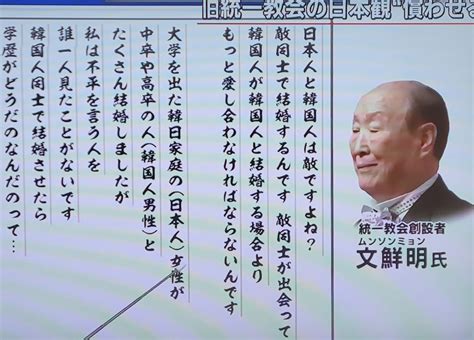 旧統一教会の日本観“償わせる
日本人と韓国人は敵ですよね?
敵同士で結婚するんです 敵同士が出会って
韓国人が韓国人と結婚する場合より
もっと愛し合わなければならないんです
大学を出た韓日家庭の(日本人)女性が
中卒や高卒の人(韓国人男性)と
たくさん結婚しましたが
私は不平を言う人を
誰一人見たことがないです
韓国人同士で結婚させたら
学歴がどうだのなんだのって…
統一教会創設者
ムンソンミョン
文鮮明氏